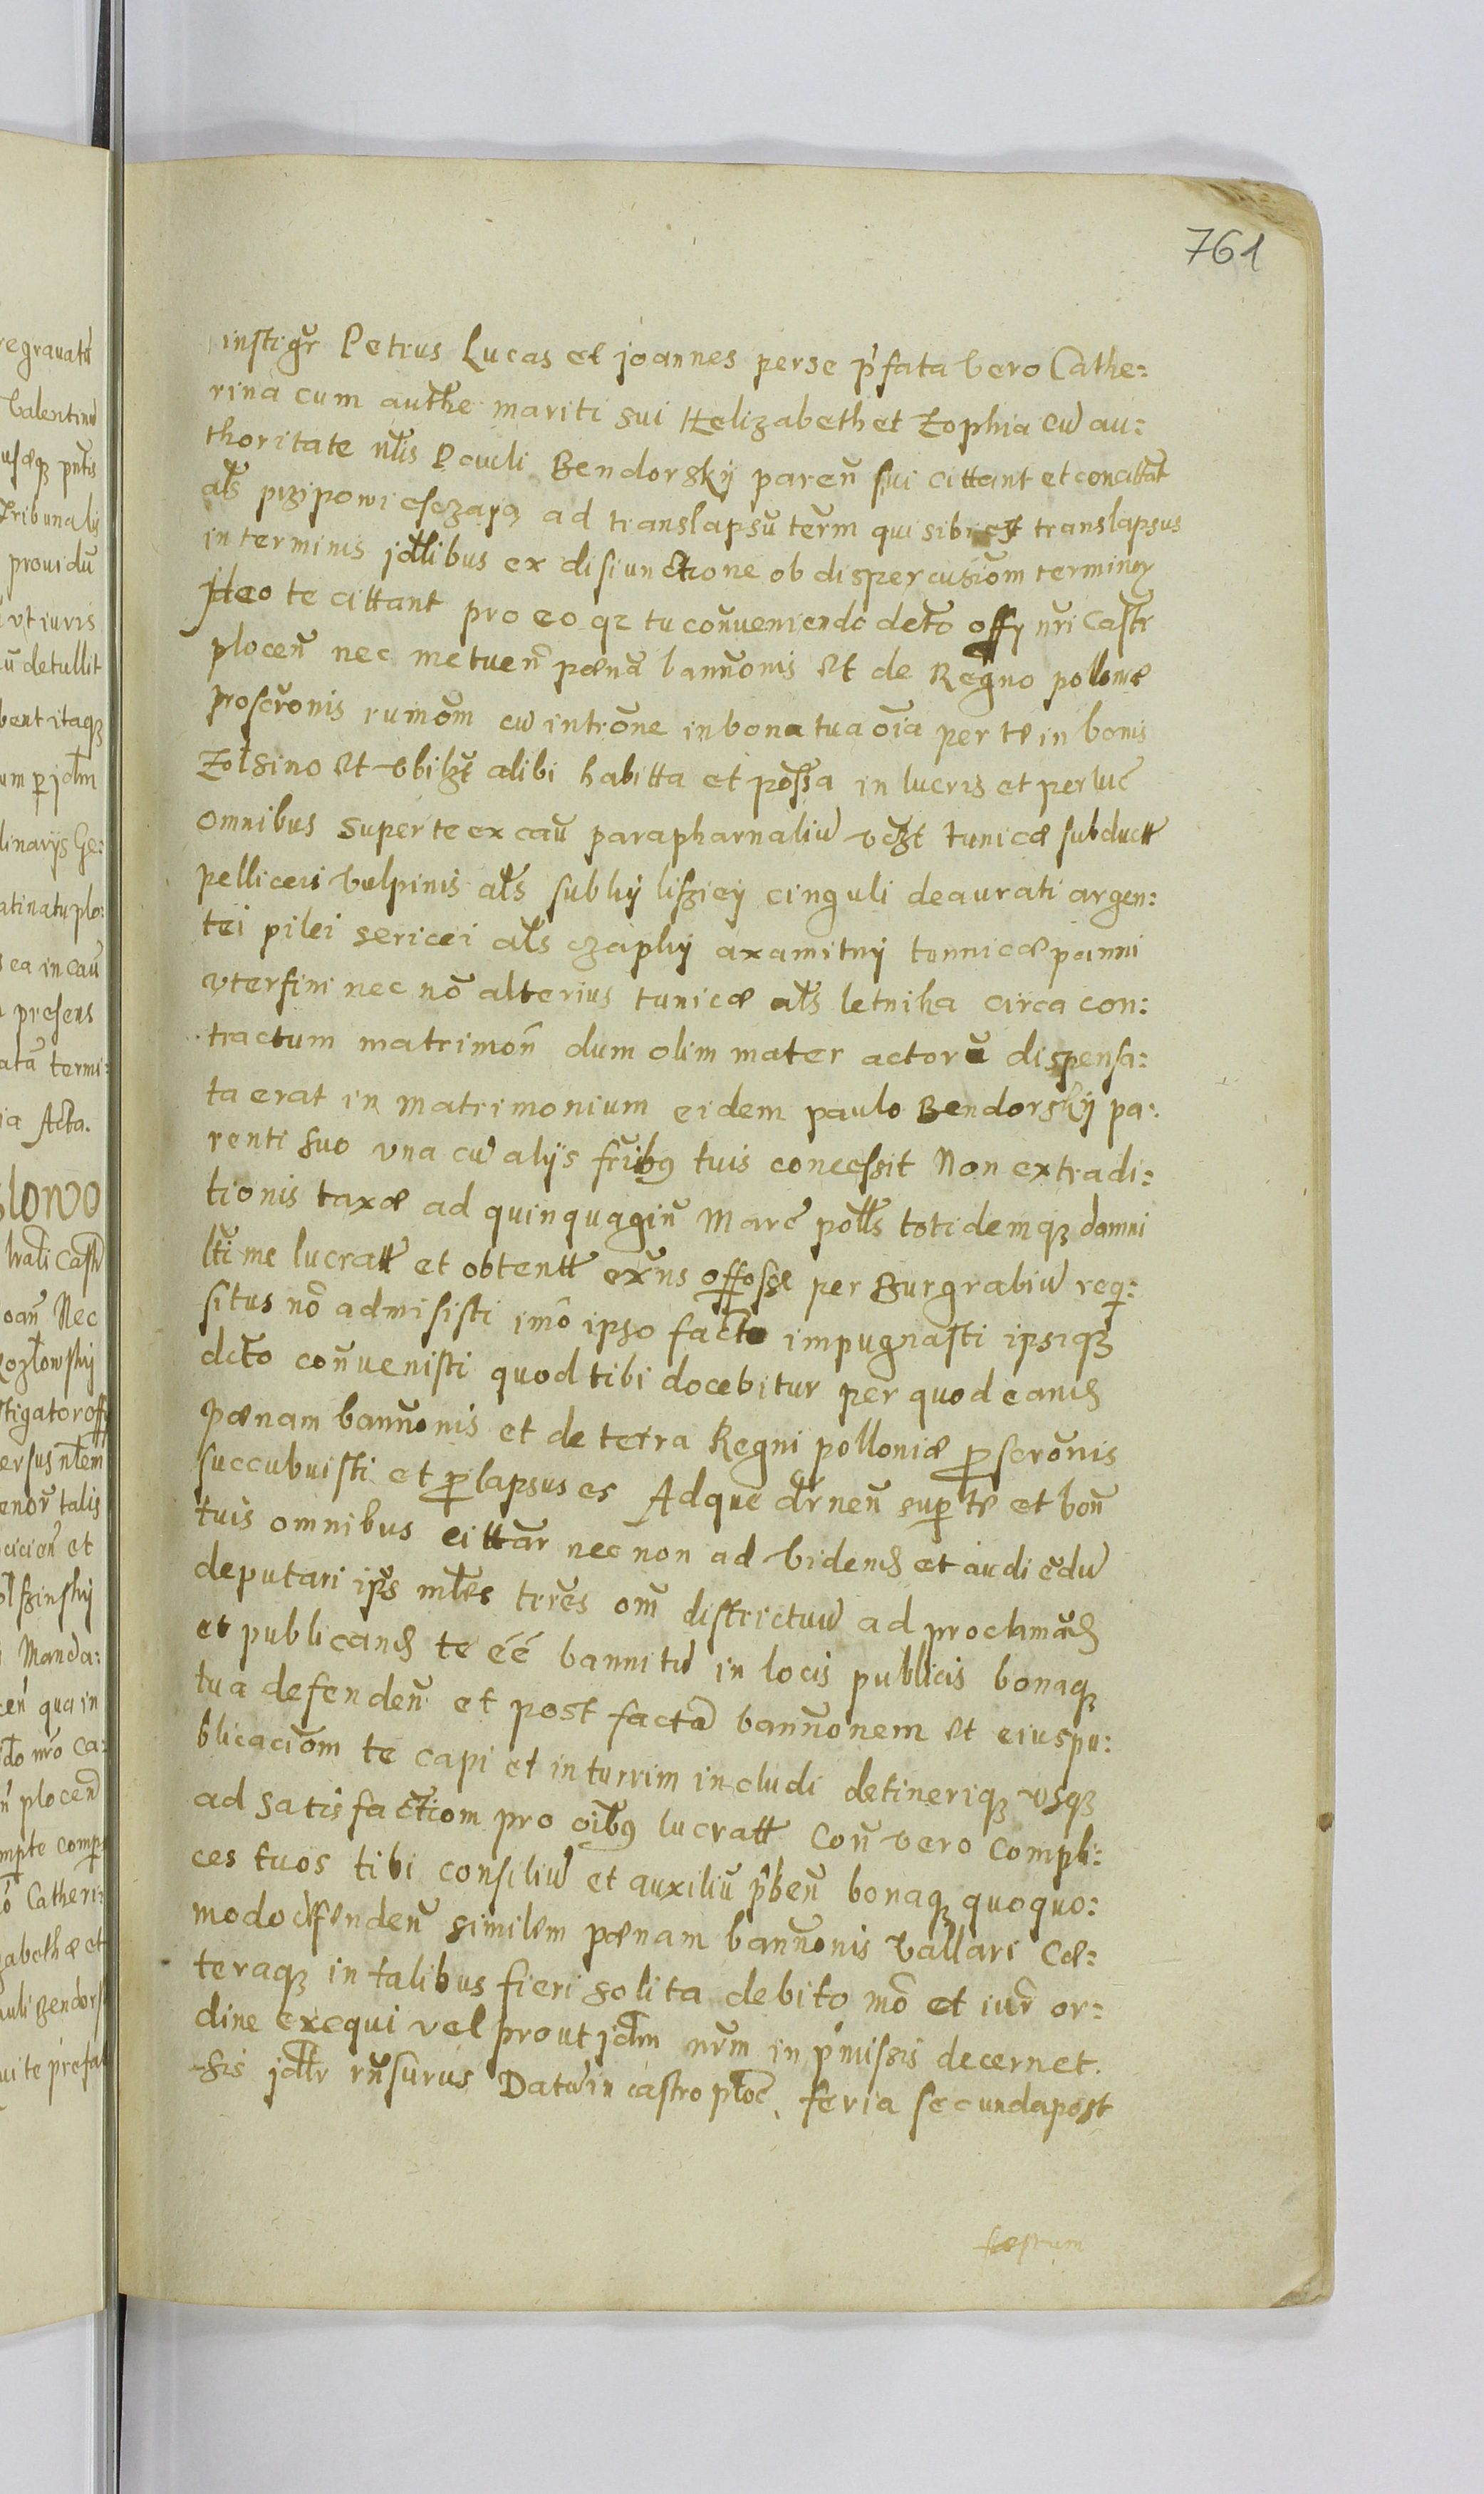 761
instigr̃ Petrus Lucas et joannes perse p̃fata vero Cathe:
rina cum auth̃e mariti sui Helizabeth et Zophia cũ au:
thoritate nl̃is Pauli Bendorsky pareñ sui cittant et concittãt
al̃s przipowiesczaią ad translapsũ ter̃m qui sibi est translapsus
in terminis jdl̃libus ex disiunctione ob dispercusiõm terminor
Jdeo te cittant pro eo qz tu coñveniendo det̃o offy nr̃i Castr̃
ploceñ nec metueñ pœnã banñonis et de Regno poloniæ
proscr̃onis rumõm cũ intrõne in bona tua õia per te in bonis
Zolsino et vbilzt̃ alibi habitta et poss̃a in lucris et perluc̃
omnibus super te ex caũ parapharnaliũ vcz̃t tunicæ subductt̃
pelliceis vulpinis al̃s subky lisziey cinguli deaurati argen:
tei pilei sericei al̃s czapky axamitny tunnicæ panni
vterfini nec nõ alterius tunicæ al̃s letnika circa con:
tractum matrimoñ dum olim mater actorũ dispensa:
ta erat in matrimonium eidem paulo Bendorsky pa:
renti suo vna cũ alijs fr̃ibg tuis conecssit Non extradi:
tionis taxæ ad quinquagiñ Marc̃ poll̃s totidemqz damni
ltĩme lucratt̃ et obtentt̃ ex̃ns offosæ per Burgrabiũ req̃:
situs nõ admisisti imõ ipso facto impugnasti ipsiqz
dct̃o coñvenisti quod tibi docebitur per quod eand̃
Pœnam banñonis et de terra Regni polloniæ p̃scr̃onis
succubuisti et p̃lapsus es Ad que dr̃neñ sup̃ te et boñ
tuis omnibus cittar̃ nec non ad vidend̃ et audiẽdũ
deputari ip̃s ml̃es trr̃es om̃ districtuũ ad proclamãd̃
et publicand̃ te éé bannitũ in locis publicis bonaqz
tua defendeñ et post factã banñonem et eius pu:
blicaciõm te capi et in turrim includi detineriqz vsqz
ad satisfactiõm pro õibg lucratt̃ Coñ vero Compli:
ces tuos tibi consiliũ et auxiliũ p̃beñ bonaqz quoquo:
modo defendeñ similem pœnam banñonis vallari Cæ:
teraqz in talibus fieri solita debito mõ et iur̃ or:
dine exequi vel prout jdm̃ nrm̃ in p̃missis decernet.
sis jdl̃r rñsurus Datũ in castro ploc̃. feria secunda post
festum